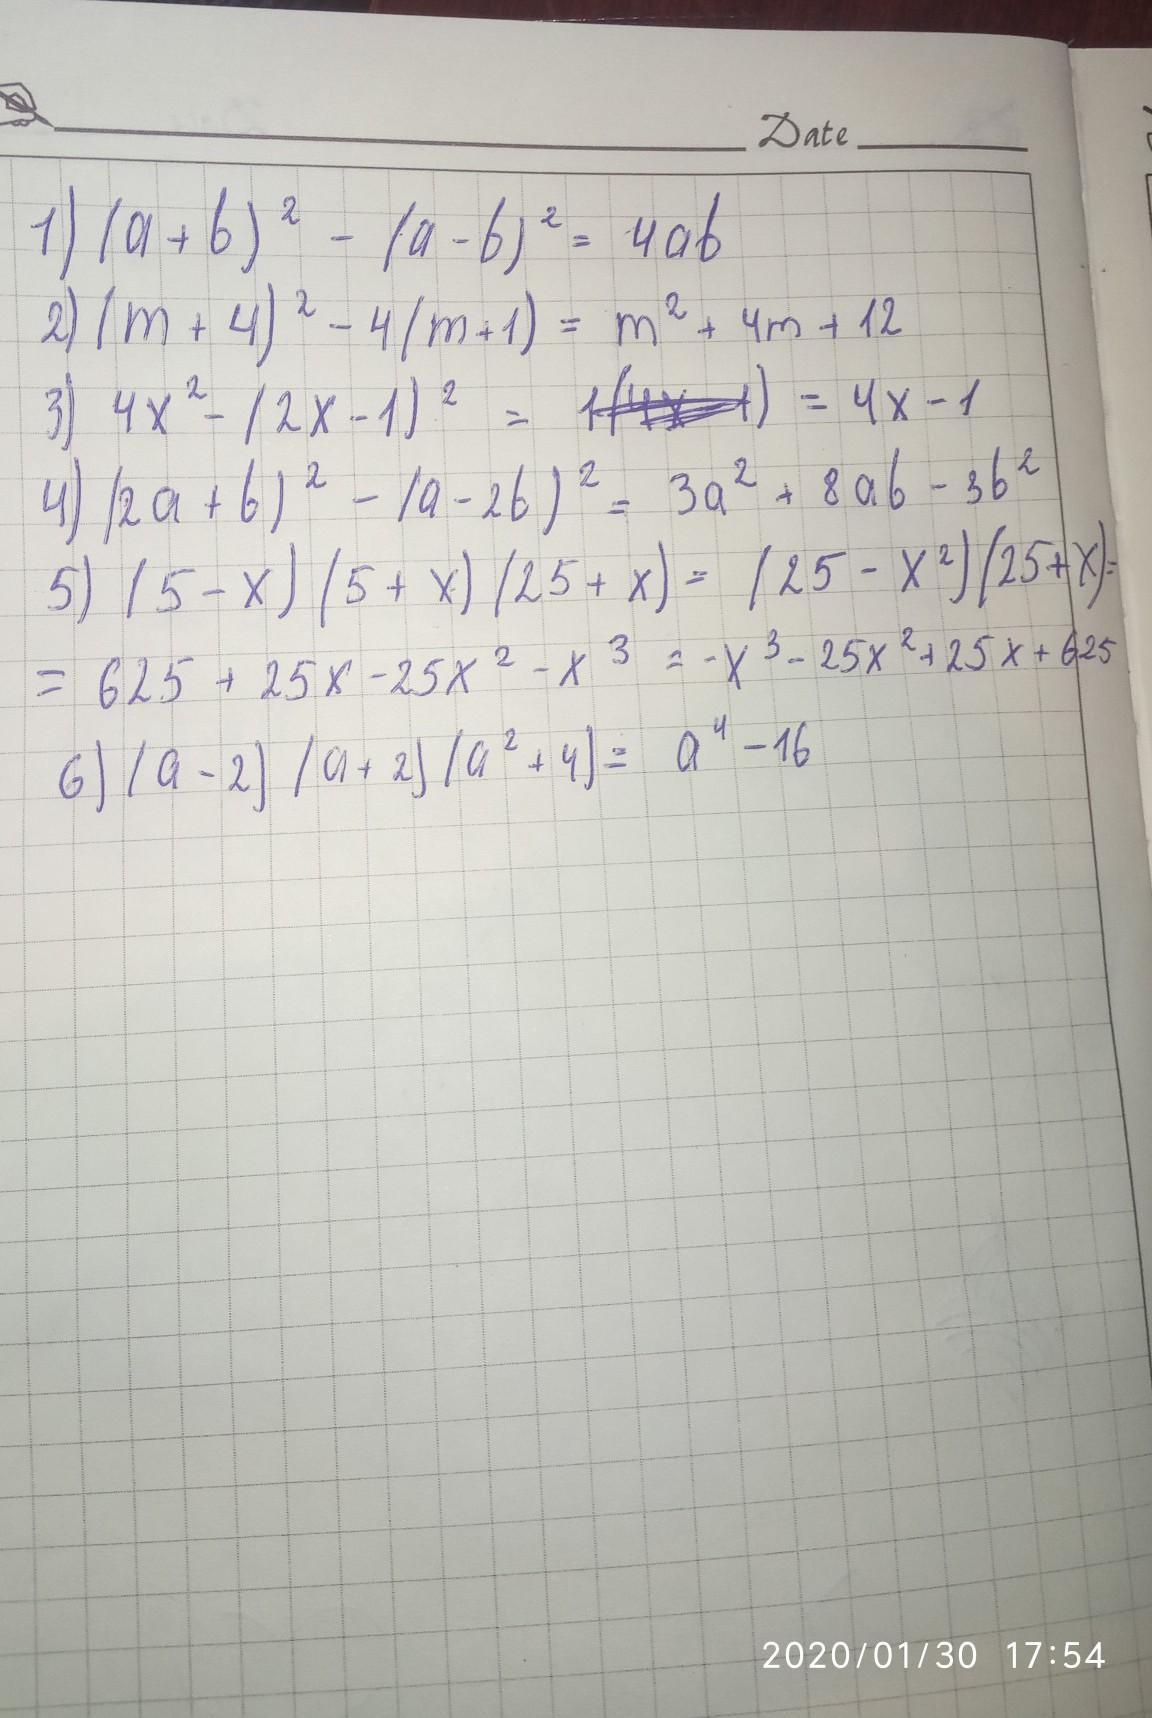 Date
1) (a + b)² - (a - b)² = 4ab
2) (m + 4)² - 4(m+1) = m² + 4m + 12
3) 4x² - (2x - 1)² = 1( ) = 4x - 1
4) (2a + b)² - (a - 2b)² = 3a² + 8ab - 3b²
5) (5 - x) (5 + x) (25 + x) = (25 - x²) (25 + x) =
= 625 + 25x - 25x² - x³ = -x³ - 25x² + 25x + 625
6) (a - 2) (a + 2) (a² + 4) = a⁴ - 16
2020/01/30 17:54